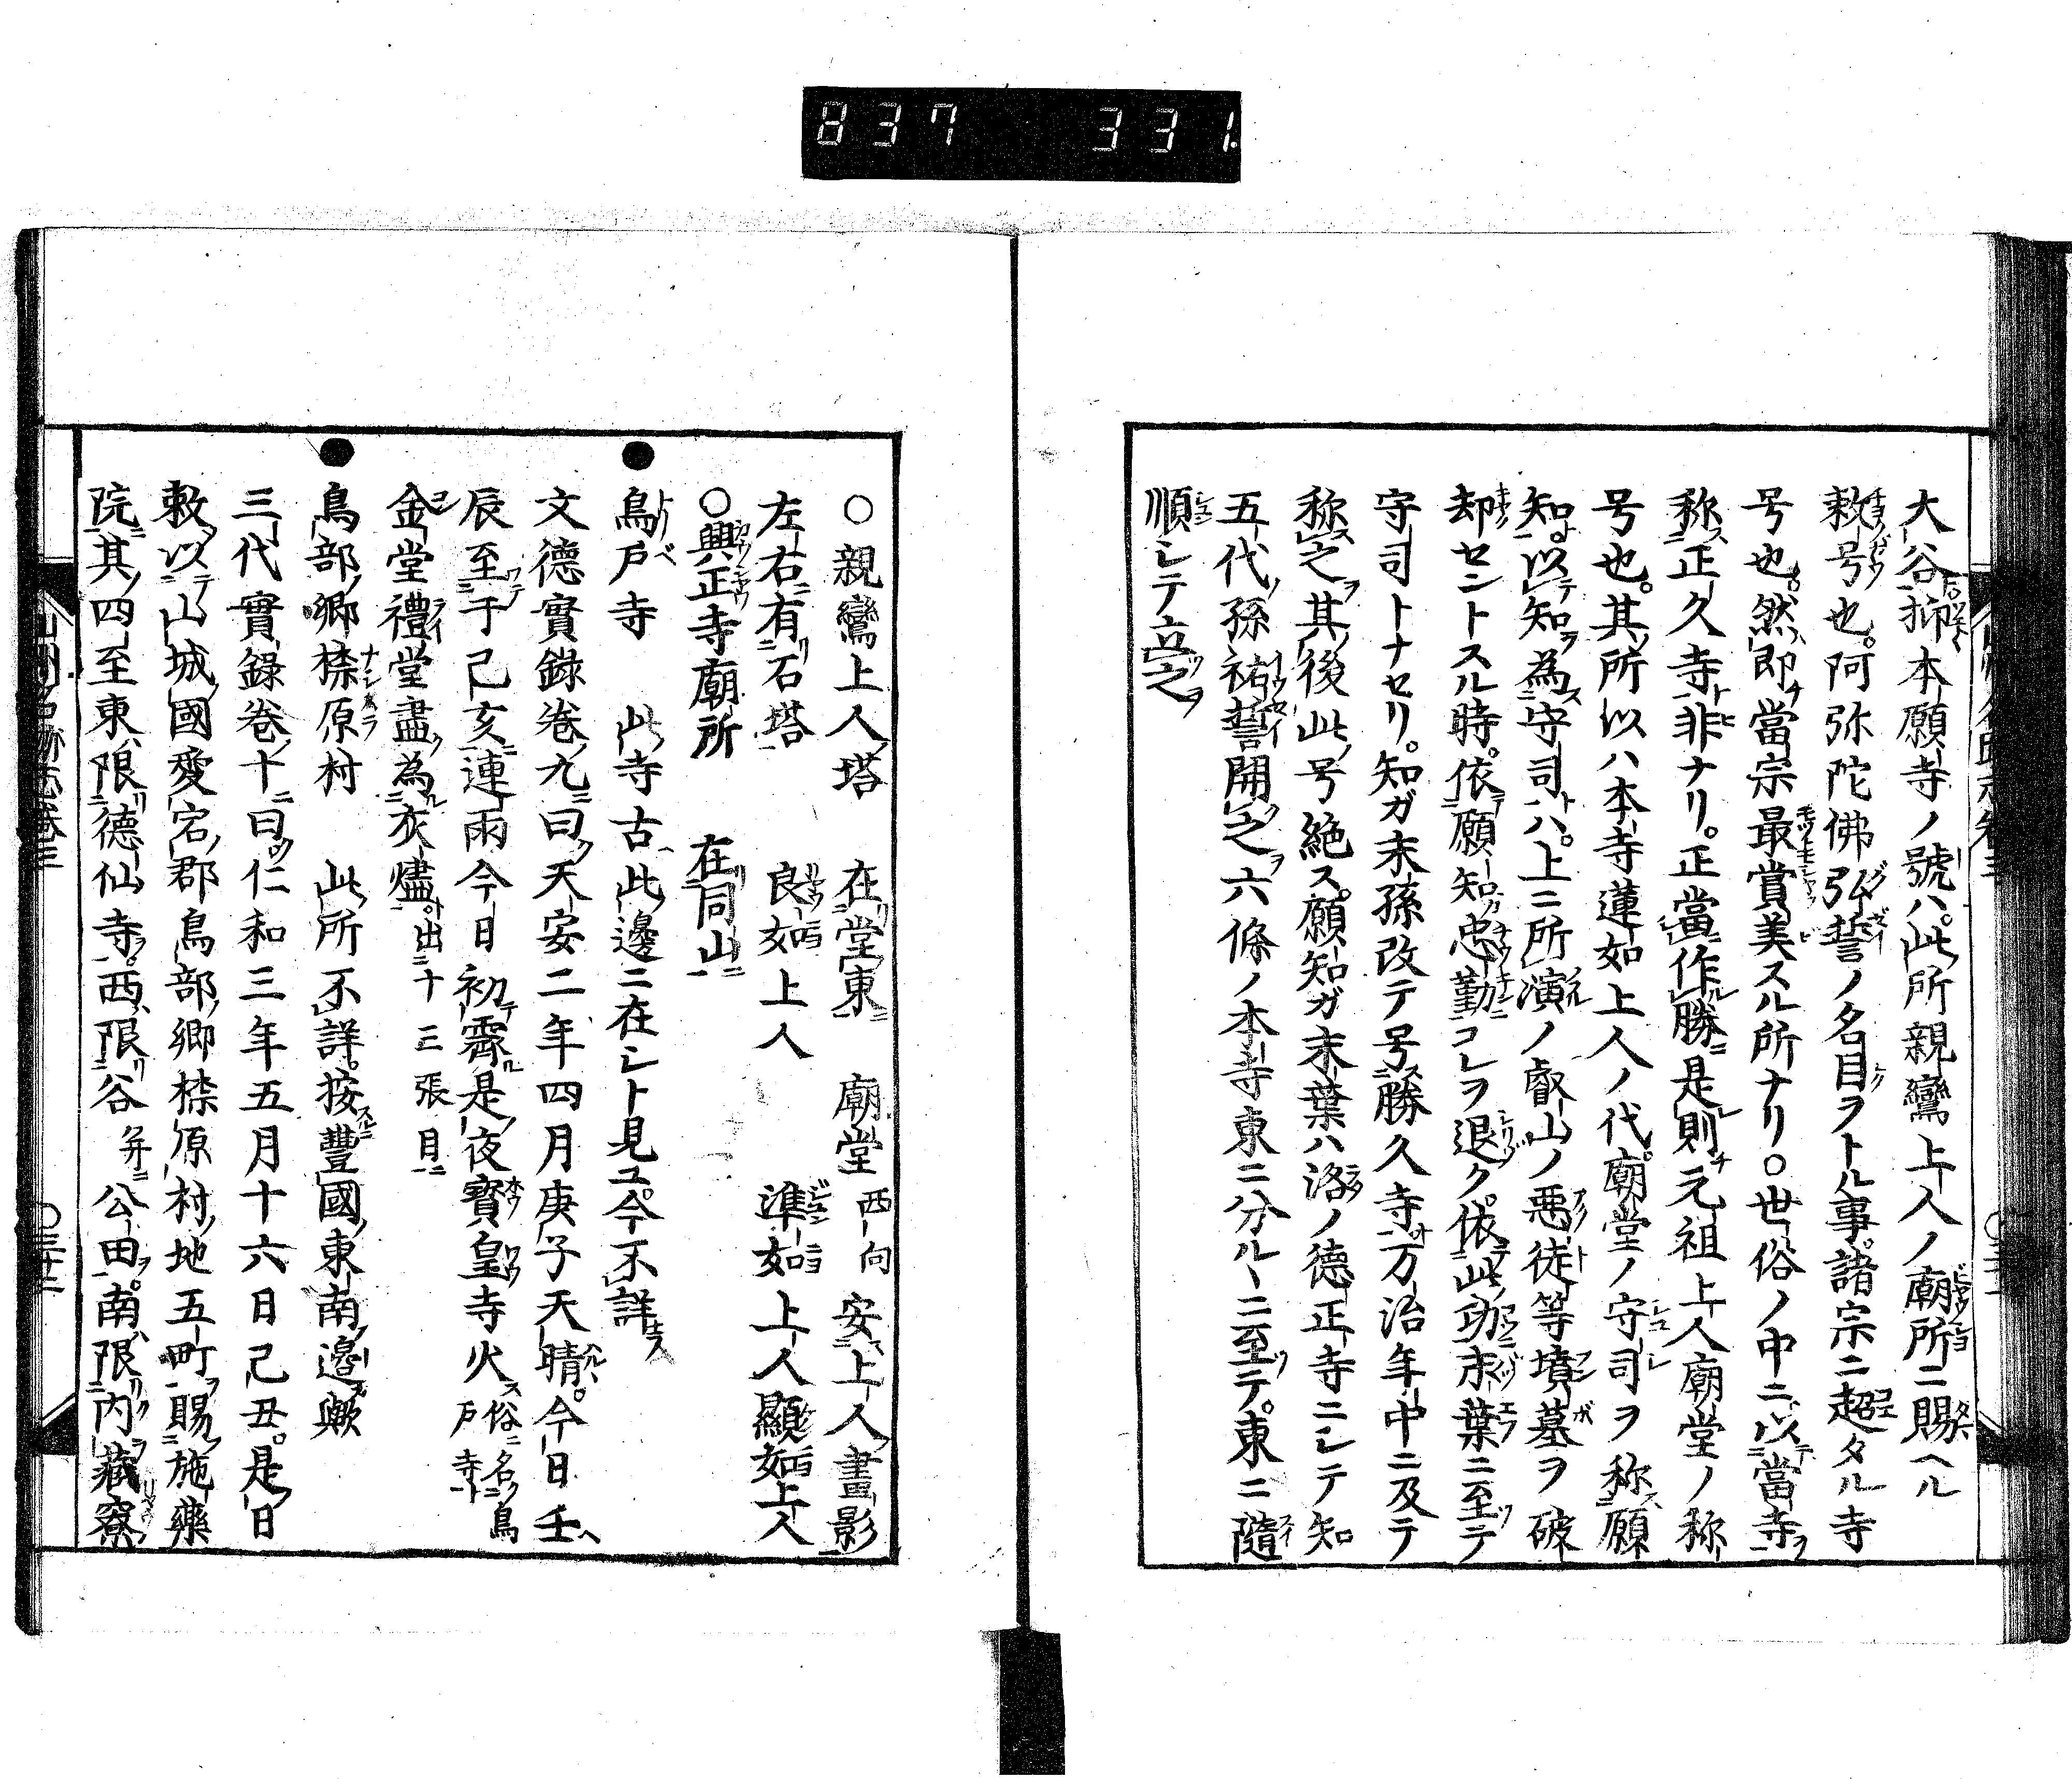 837 331.
大谷抑本願寺ノ號ハ此所親鸞上人ノ廟所ニ賜ヘル
敕号也。阿弥陀佛弘誓ノ名目ヲトル事。諸宗ニ超タル寺
号也。然即當宗最賞美スル所ナリ。○世俗ノ中ニ以當寺
称正久寺非ナリ。正當作勝是則元祖上人廟堂ノ称
号也。其所以ハ本寺蓮如上人ノ代。廟堂ノ守司ヲ称願
知。以知為守司ハ。上ニ所演ノ叡山ノ悪徒等墳墓ヲ破
却セントスル時。依願知忠勤コレヲ退ク。依此功末葉ニ至テ
守司トナセリ。知ガ末孫改テ号勝久寺。万治年中ニ及テ
称之其後此号絶ス。願知ガ末葉ハ洛ノ德正寺ニシテ知
五代孫祐誓開之六條ノ本寺東ニ分ルヽニ至テ。東ニ隨
順シテ立之
○親鸞上人塔 在堂東 廟堂 西向 安上人畫影
左右有石塔 良如上人 準如上人顯如上人
○興正寺廟所 在同山
●鳥戸寺 此寺古此邊ニ在シト見ユ。今不詳
文德實錄卷九曰天安二年四月庚子天晴。今日壬
辰至于己亥連雨今日初霽是夜寳皇寺火 俗名鳥戸寺
金堂禮堂盡為灰燼。出十三張目
●鳥部郷㮈原村 此所不詳。按豐國東南邊歟
三代實錄卷十曰。仁和三年五月十六日己丑。是日
敕以山城國愛宕郡鳥部郷㮈原村地五町賜施藥
院其四至東限德仙寺。西限谷 并公田。南限内藏寮
山州名跡志卷三